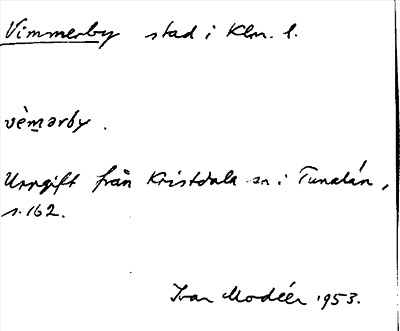 Vimmerby stad i Klm. l.
vèmərby.
Uppgift från Kristdala sn i Tunalän,
s. 162.
Ivar Modéer 1953.